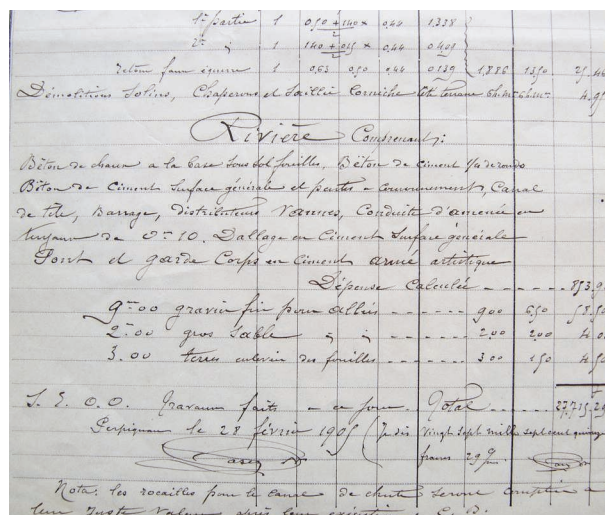 1re partie 1 0,50 + 1,40 × 0,44 1,338
2e " 1 1,40 + × 0,44 0,409
retour faux équerre 1 0,63 0,50 0,44 0,139 1,886 13,50 25,4
Démolitions Solins, Chaperons et Saillie corniche côté terrasse 4.9
Rivière Comprenant:
Béton de chaux a la base Sous Sol fouilles, Béton de Ciment
Béton de Ciment Surface générale et pentes - couronnement, Canal
de tête, Barrage, distributeurs Vannes, Conduite d'amenée en
tuyaux de 0m10. Dallage en Ciment Surface générale
Pont et garde Corps en ciment armé artistique
Dépense Calculée - - - - - 853.9
9m00 gravier fin pour allées - - - - - 9 00 6,50 58,50
2m00 gros Sable " " - - - - - 2,00 2,00 4,0
3.00 terres enlevées des fouilles - - - - - 3 00 1,50 4,50
S. E. O. O. Travaux faits - ce jour. Total - - - - - 27,715,29
Perpignan le 28 février 1905 (Je dis Vingt Sept mille sept cent quinze
francs 29
Nota: les rocailles pour le canal de chute seront comptées a
leur Juste Valeur après leur exécution.